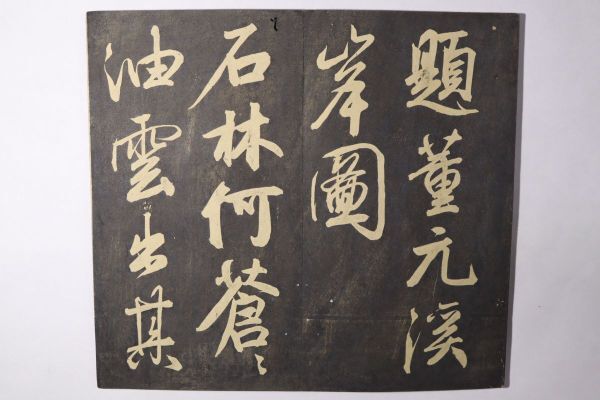 題董元溪
岸圖
石林何蒼〻
油雲出其